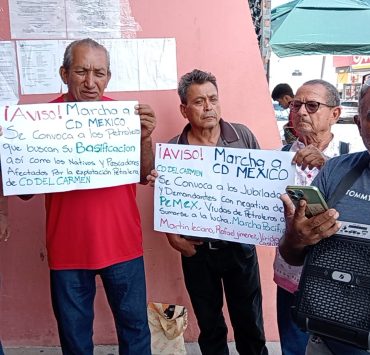 ¡AVISO! Marcha a
CD MEXICO
Se Convoca a los Petroleros
que buscan su Basificacion
así como los Nativos y Pescadores
Afectados Por la explotación Petrolera
de CD DEL CARMEN
¡AVISO! Marcha a
CD MEXICO
CD DEL CARMEN
Se Convoca a los Jubilados
y Demandantes Con negativa de
Pemex, Viudas de Petroleros a
Sumarse a la lucha. Marcha Pacífica
Martin lecano, Rafael jimenez,
TOMMY